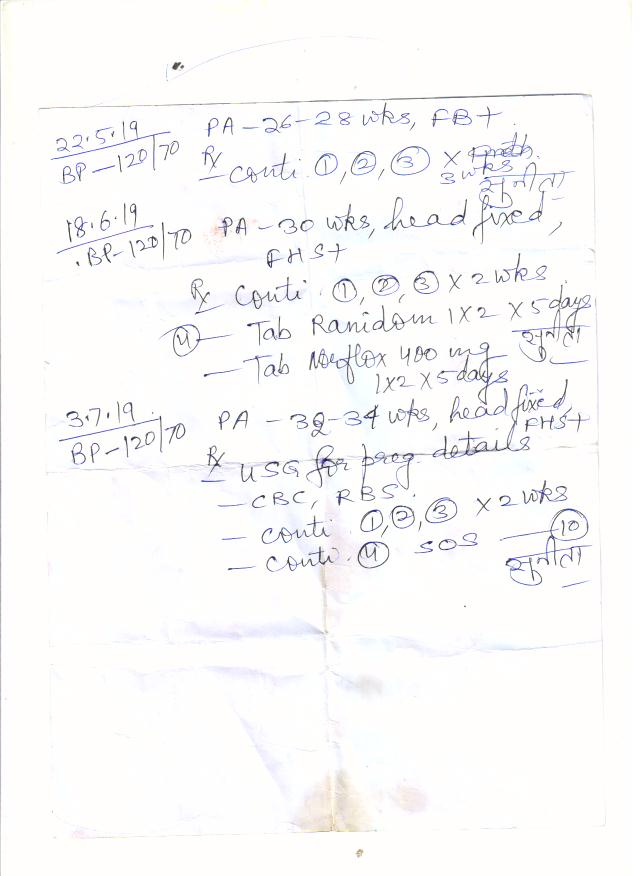 22.5.19 PA - 26-28 wks, FB+.
BP - 120/70 Rx conti. ①, ②, ③ ×
3 wks
सुनीता
18.6.19 PA - 30 wks, head fixed,
BP - 120/70 FHS+
Rx conti. ①, ②, ③ × 2 wks.
④ - Tab Ranidom 1×2 × 5 days
- Tab Norflox 400 mg सुनीता
1×2 × 5 days
3.7.19 PA - 32-34 wks, head fixed,
BP - 120/70 FHS+
Rx USG for preg. details
- CBC, RBS.
- conti ①, ②, ③ × 2 wks
- conti. ④ SOS - ⑩
सुनीता